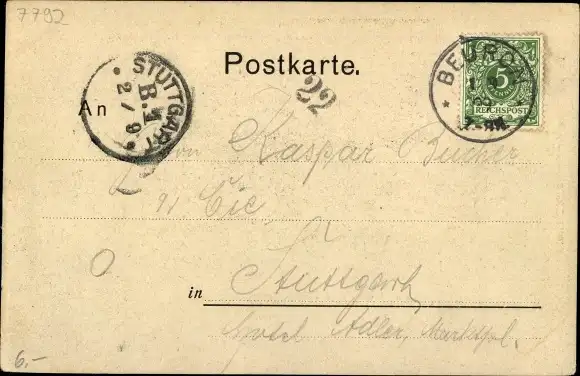 7792
Postkarte.
STUTTGART
B. 1
2/9
22
BEURON
5
REICHSPOST
7-8N.
An
Herrn Kaspar Bucher
Cie
O
in Stuttgart
Hotel Adler, Marktpl.
6,-